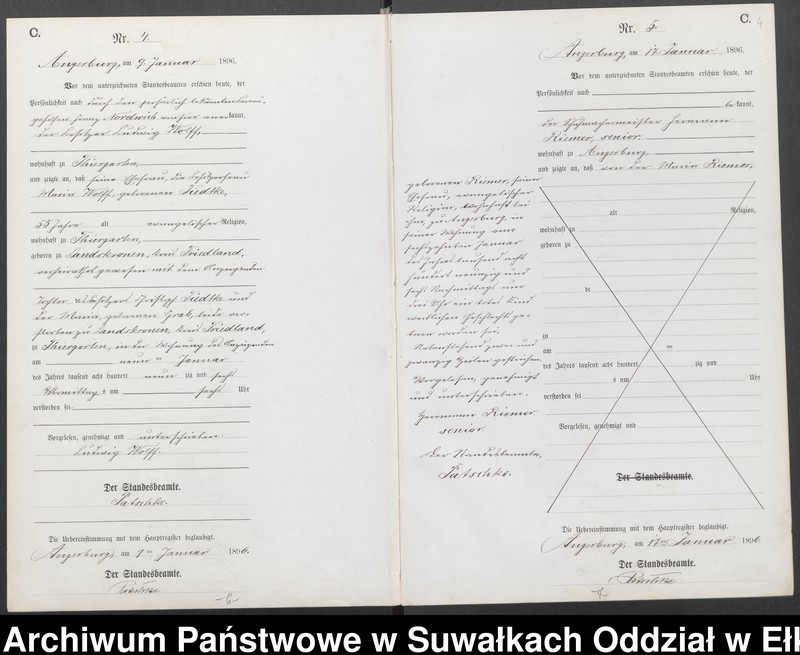 C.
Nr. 4.
Angerburg, am 9. Januar 1896.
Vor dem unterzeichneten Standesbeamten erschien heute, der
Persönlichkeit nach durch den persönlich bekannten
Nordwich kannt,
der Besitzer Ludwig Wolff,
wohnhaft zu Thiergarten,
und zeigte an, daß seine Ehefrau, die Besitzerfrau
Maria Wolff geborenen Tiedtke,
55 Jahre alt evangelischer Religion,
wohnhaft zu Thiergarten,
geboren zu Landskronen, Kreis Friedland,
verheirathet gewesen mit dem Anzeigenden
Tochter des Besitzers Christoph Tiedtke und
der Maria, geborenen Grab, beide ver-
storben zu Landskronen, Kreis Friedland,
zu Thiergarten, in der Wohnung des Anzeigenden
am neunten Januar
des Jahres tausend acht hundert neunzig und sechs
Vormittags um sechs Uhr
verstorben sei.
Vorgelesen, genehmigt und unterschrieben.
Ludwig Wolff.
Der Standesbeamte.
Patschke.
Die Uebereinstimmung mit dem Hauptregister beglaubigt.
Angerburg, am 9ten Januar 1896.
Der Standesbeamte.
Patschke
C.
4
Nr. 5.
Angerburg, am 17. Januar 1896.
Vor dem unterzeichneten Standesbeamten erschien heute, der
Persönlichkeit nach
bekannt,
der Schuhmachermeister Hermann
Riemer, senior,
wohnhaft zu Angerburg,
und zeigte an, daß von der Maria Riemer,
geborenen Riemer, seiner
Ehefrau, evangelischer
Religion, wohnhaft bei
ihm, zu Angerburg, in
seiner Wohnung am
sechszehnten Januar
des Jahres tausend acht
hundert neunzig und
sechs Nachmittags um
drei Uhr ein todtes Kind
weiblichen Geschlechts ge-
boren worden sei.
Nebenstehend zwei und
zwanzig Zeilen gestrichen.
Vorgelesen, genehmigt
und unterschrieben.
Herrmann Riemer
senior.
Der Standesbeamte.
Patschke.
alt Religion,
wohnhaft zu
geboren zu
de
zu
am ten
des Jahres tausend acht hundert zig und
s um Uhr
verstorben sei
Vorgelesen, genehmigt und
Der Standesbeamte.
Die Uebereinstimmung mit dem Hauptregister beglaubigt.
Angerburg, am 17ten Januar 1896
Der Standesbeamte.
Patschke
Archiwum Państwowe w Suwałkach Oddział w Ełk